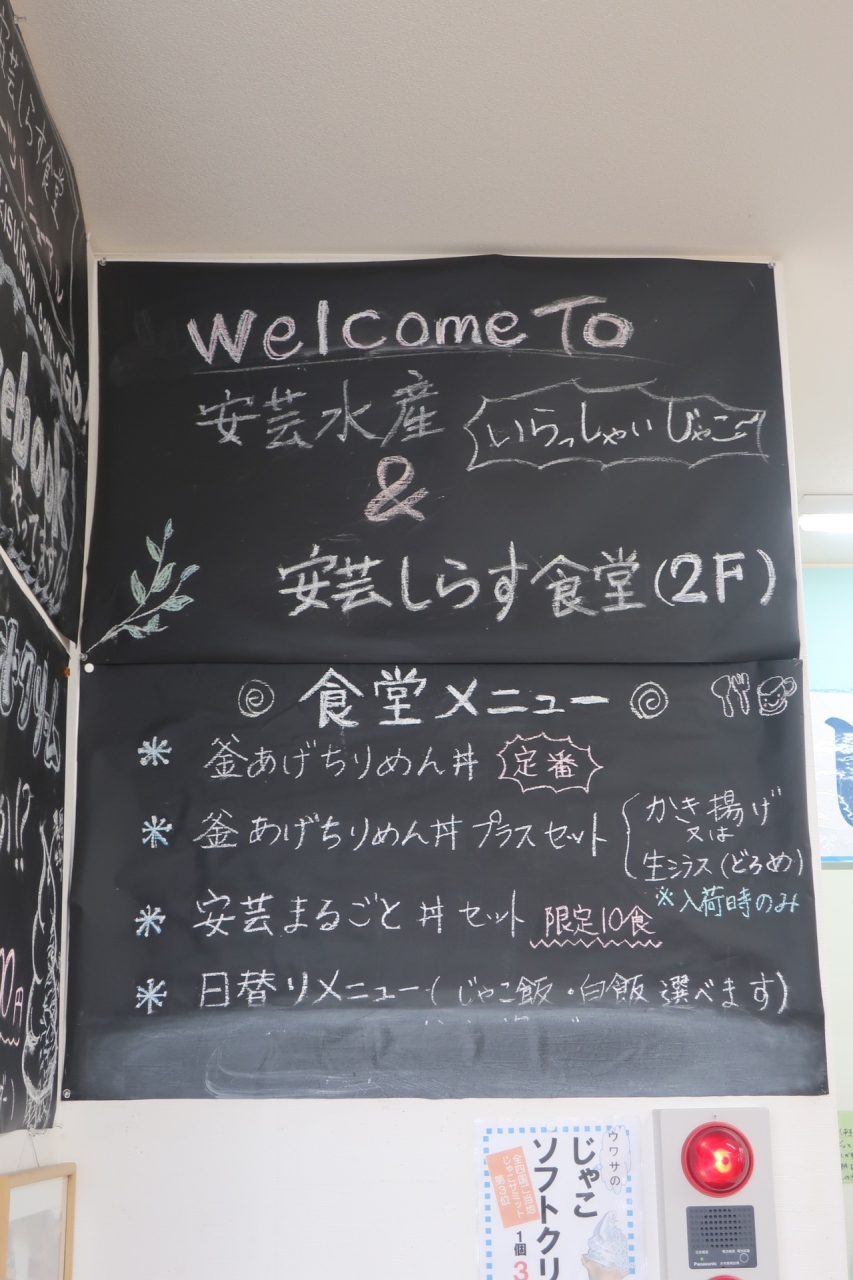 Welcome To
安芸水産
いらっしゃいじゃこ
&
安芸しらす食堂(2F)
食堂メニュー
釜あげちりめん丼 定番
釜あげちりめん丼 プラスセット
かき揚げ
又は
生シラス(どろめ)
※入荷時のみ
安芸まるごと丼セット 限定10食
日替りメニュー(じゃこ飯・白飯 選べます)
安芸しらす食堂
ebook
やってます
ウワサの
じゃこ
ソフトクリ
全四国ご当地
じゃこサミット
第3位
1個3
Panasonic